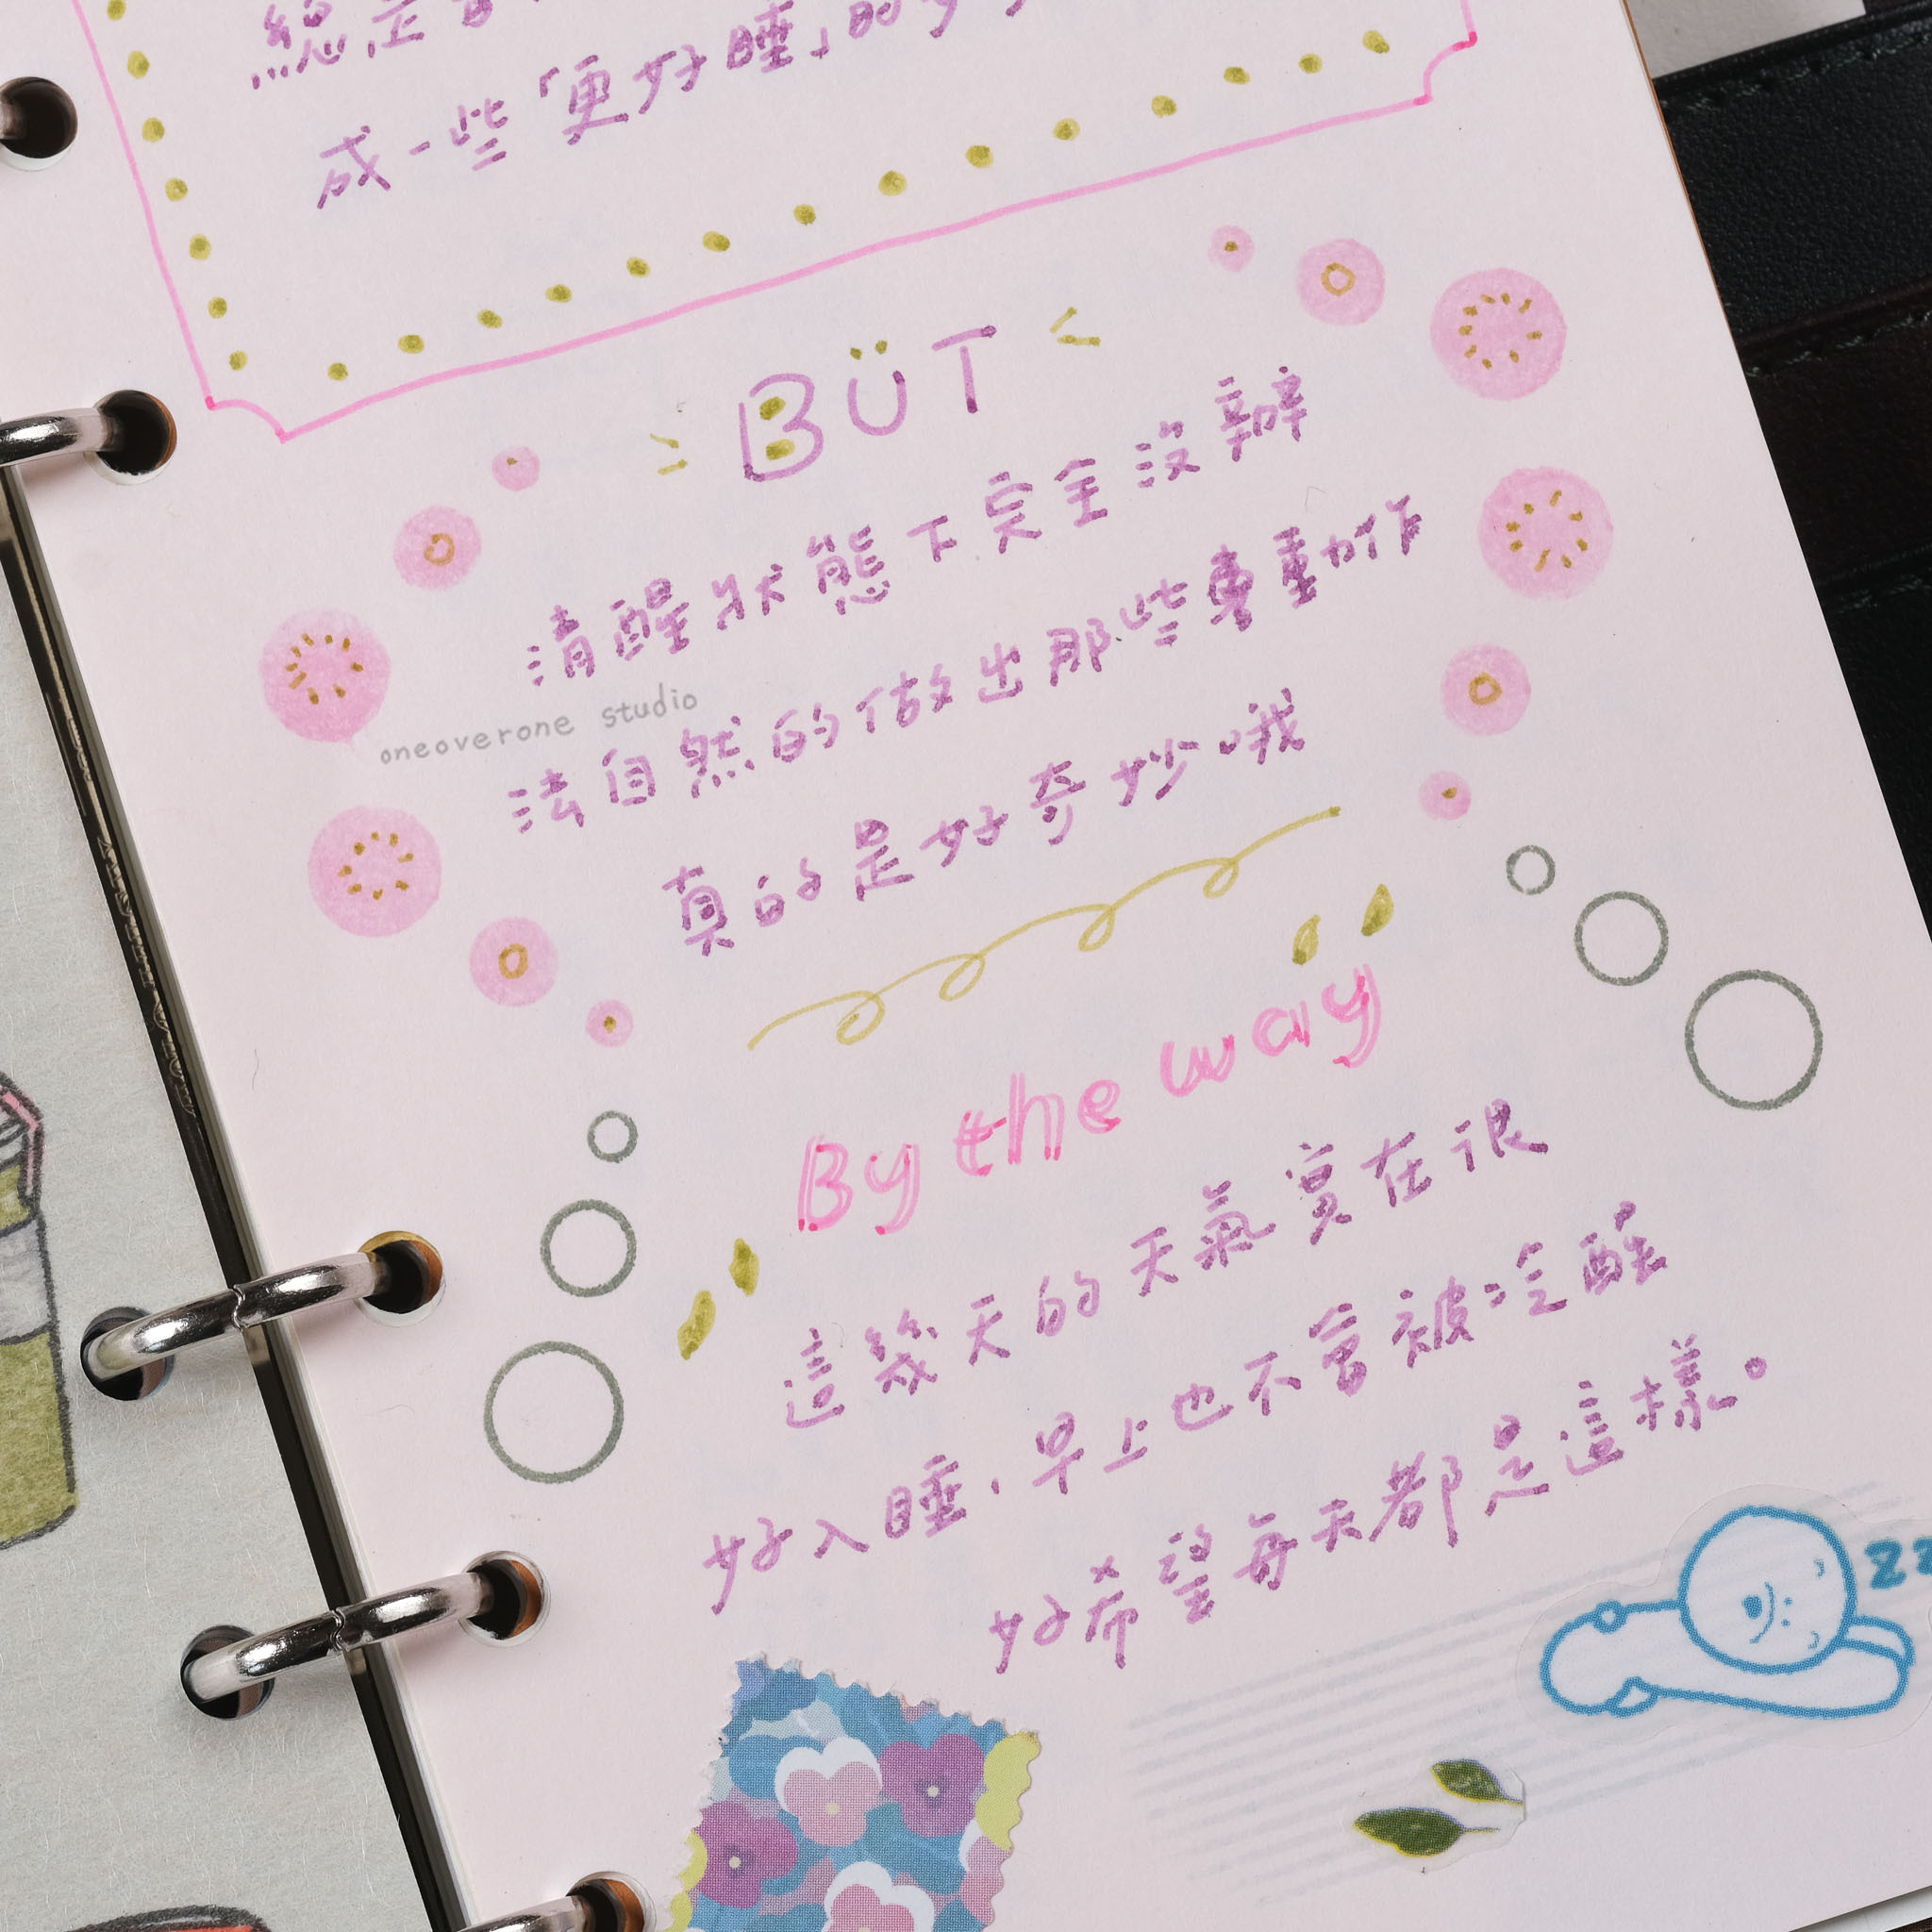 總是
成一些「更好睡」的
BUT
清醒狀態下完全沒辦
法自然的做出那些舉動作
oneoverone studio
真的是好奇妙哦
By the way
這幾天的天氣實在很
好入睡,早上也不會被冷醒
好希望每天都是這樣。
zz